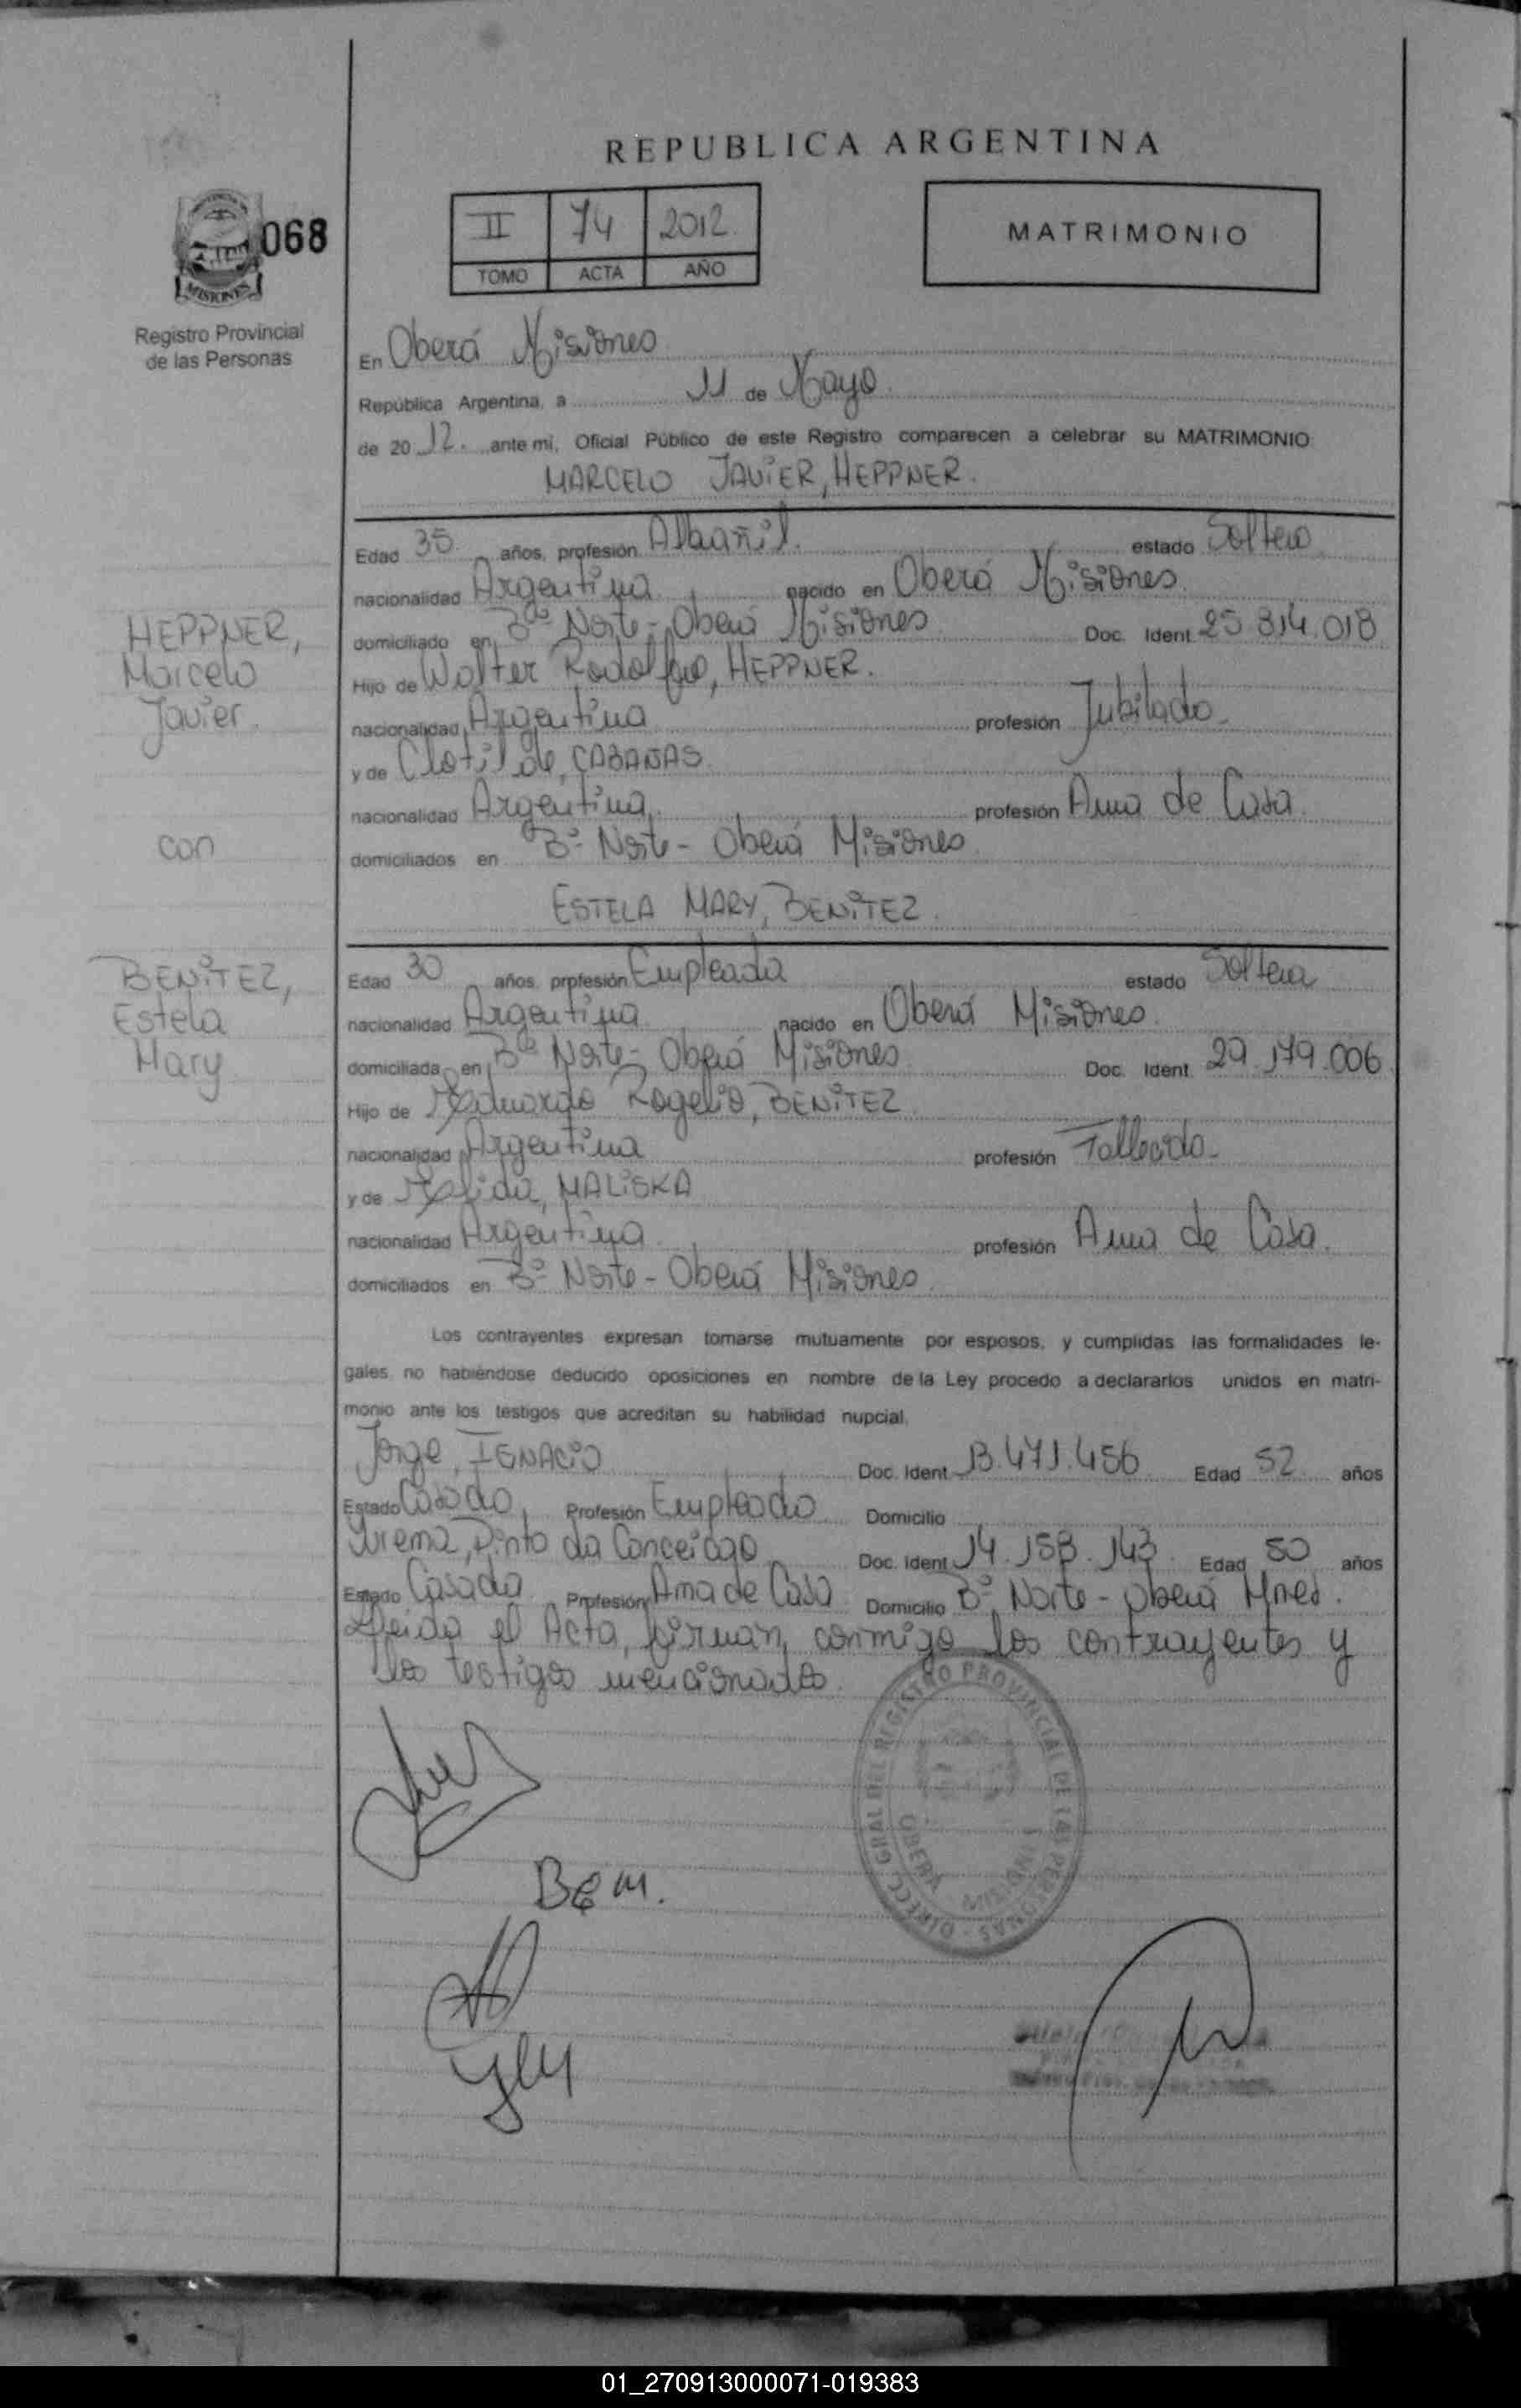 REPUBLICA ARGENTINA
II 74 2012
TOMO ACTA AÑO
MATRIMONIO
068
MISIONES
Registro Provincial
de las Personas
En Oberá Misiones
República Argentina, a 11 de Mayo
de 2012. ante mi, Oficial Público de este Registro comparecen a celebrar su MATRIMONIO:
MARCELO JAVIER, HEPPNER.
Edad 35 años, profesión Albañil. estado Soltero
nacionalidad Argentina nacido en Oberá Misiones.
domiciliado en Bº Norte - Oberá Misiones Doc. Ident. 25.814.018
Hijo de Walter Rodolfo, HEPPNER.
nacionalidad Argentina profesión Jubilado
y de Clotilde, CABAÑAS
nacionalidad Argentina profesión Ama de Casa
domiciliados en Bº Norte - Oberá Misiones
HEPPNER,
Marcelo
Javier.
con
BENITEZ,
Estela
Mary
ESTELA MARY, BENITEZ.
Edad 30 años, profesión Empleada estado Soltera
nacionalidad Argentina nacido en Oberá Misiones
domiciliada en Bº Norte - Oberá Misiones Doc. Ident. 29.179.006
Hijo de Eduardo Rogelio, BENITEZ
nacionalidad Argentina profesión Fallecido
y de MALISKA
nacionalidad Argentina profesión Ama de Casa.
domiciliados en Bº Norte - Oberá Misiones
Los contrayentes expresan tomarse mutuamente por esposos, y cumplidas las formalidades le-
gales, no habiéndose deducido oposiciones en nombre de la Ley procedo a declararlos unidos en matri-
monio ante los testigos que acreditan su habilidad nupcial.
Jorge, IGNACIO Doc. Ident. 13.471.456 Edad 52 años
Estado Casado Profesión Empleado Domicilio
Yrema, Pinto da Conceicao Doc. Ident. 14.158.143 Edad 50 años
Estado Casada Profesión Ama de Casa Domicilio Bº Norte - Oberá Mnes.
Leida el Acta, firman, conmigo los contrayentes y
los testigos mencionados.
DIRECC. GRAL DEL REGISTRO PROVINCIAL DE LAS PERSONAS
OBERA
B E M.
01_270913000071-019383